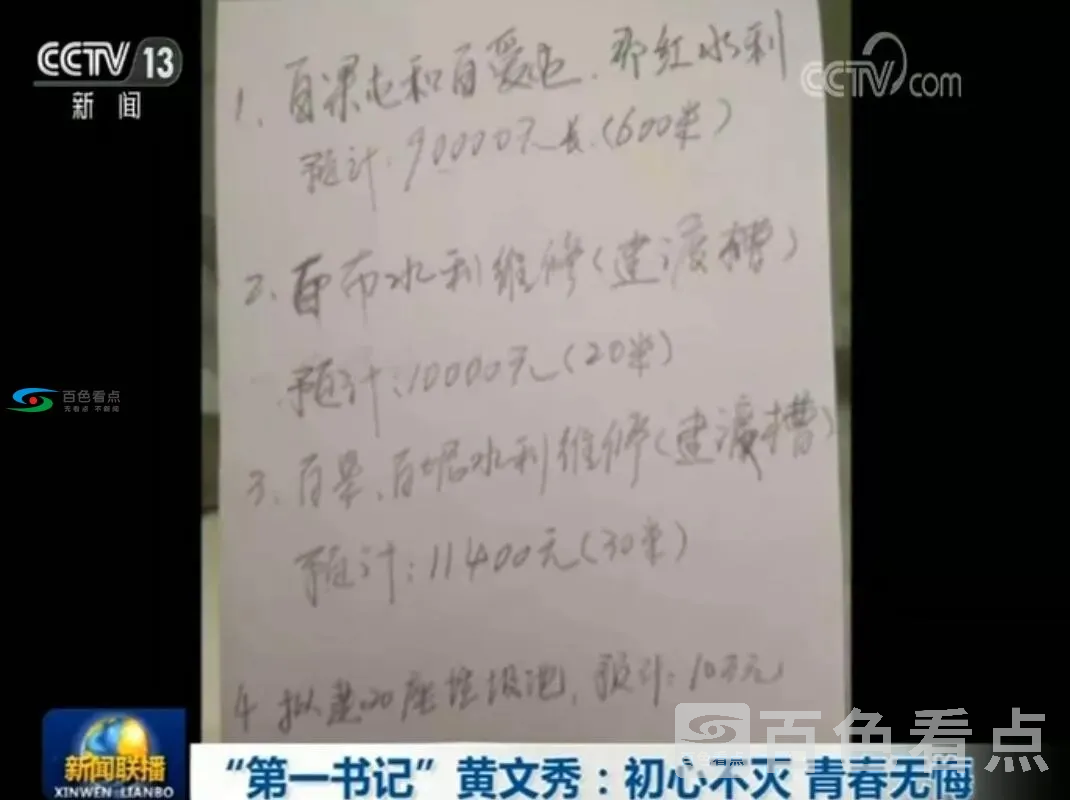 CCTV 13
新闻
CCTV.com
1、百果屯和百爱屯、那红水利
预计:90000元长(600米)
2、百布水利维修(建渡槽)
预计:10000元(20米)
百色看点
无看点 不新闻
3、百果、百坭水利维修(建渡槽)
预计:11400元(30米)
4 拟建20座垃圾池,预计:10万元
百色看点
新闻联播
XINWEN LIANBO
“第一书记”黄文秀:初心不灭 青春无悔